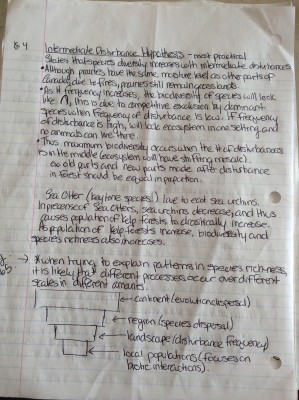 Intermediate Disturbance Hypothesis - most practical
States that species diversity increases with intermediate disturbances
• Although prairies have the same moisture level as other parts of
Canada, due to fires, prairies still remain grasslands
• As # frequency increases, the biodiversity of species will look
like ∩, this is due to competitive exclusion by dominant
species when frequency of disturbance is low. If frequency
of disturbance is high, will lack ecosystem in one setting and
no animals can live there.
• Thus maximum biodiversity occurs when the # of disturbances
is in the middle (ecosystem will have shifting mosaic).
so old parts and new parts made after disturbance
in forest should be equal in proportion.
Sea Otter (keystone species) love to eat sea urchins.
In presence of Sea Otters, sea urchins decrease, and thus
causes population of kelp forests to drastically increase.
As population of kelp forests increase, biodiversity and
species richness also increases.
→ * when trying to explain patterns in species richness,
it is likely that different processes occur over different
scales in different amounts.
← continent (evolution dispersal)
← region (species dispersal)
← landscape (disturbance frequency)
← local populations (focuses on
biotic interactions).